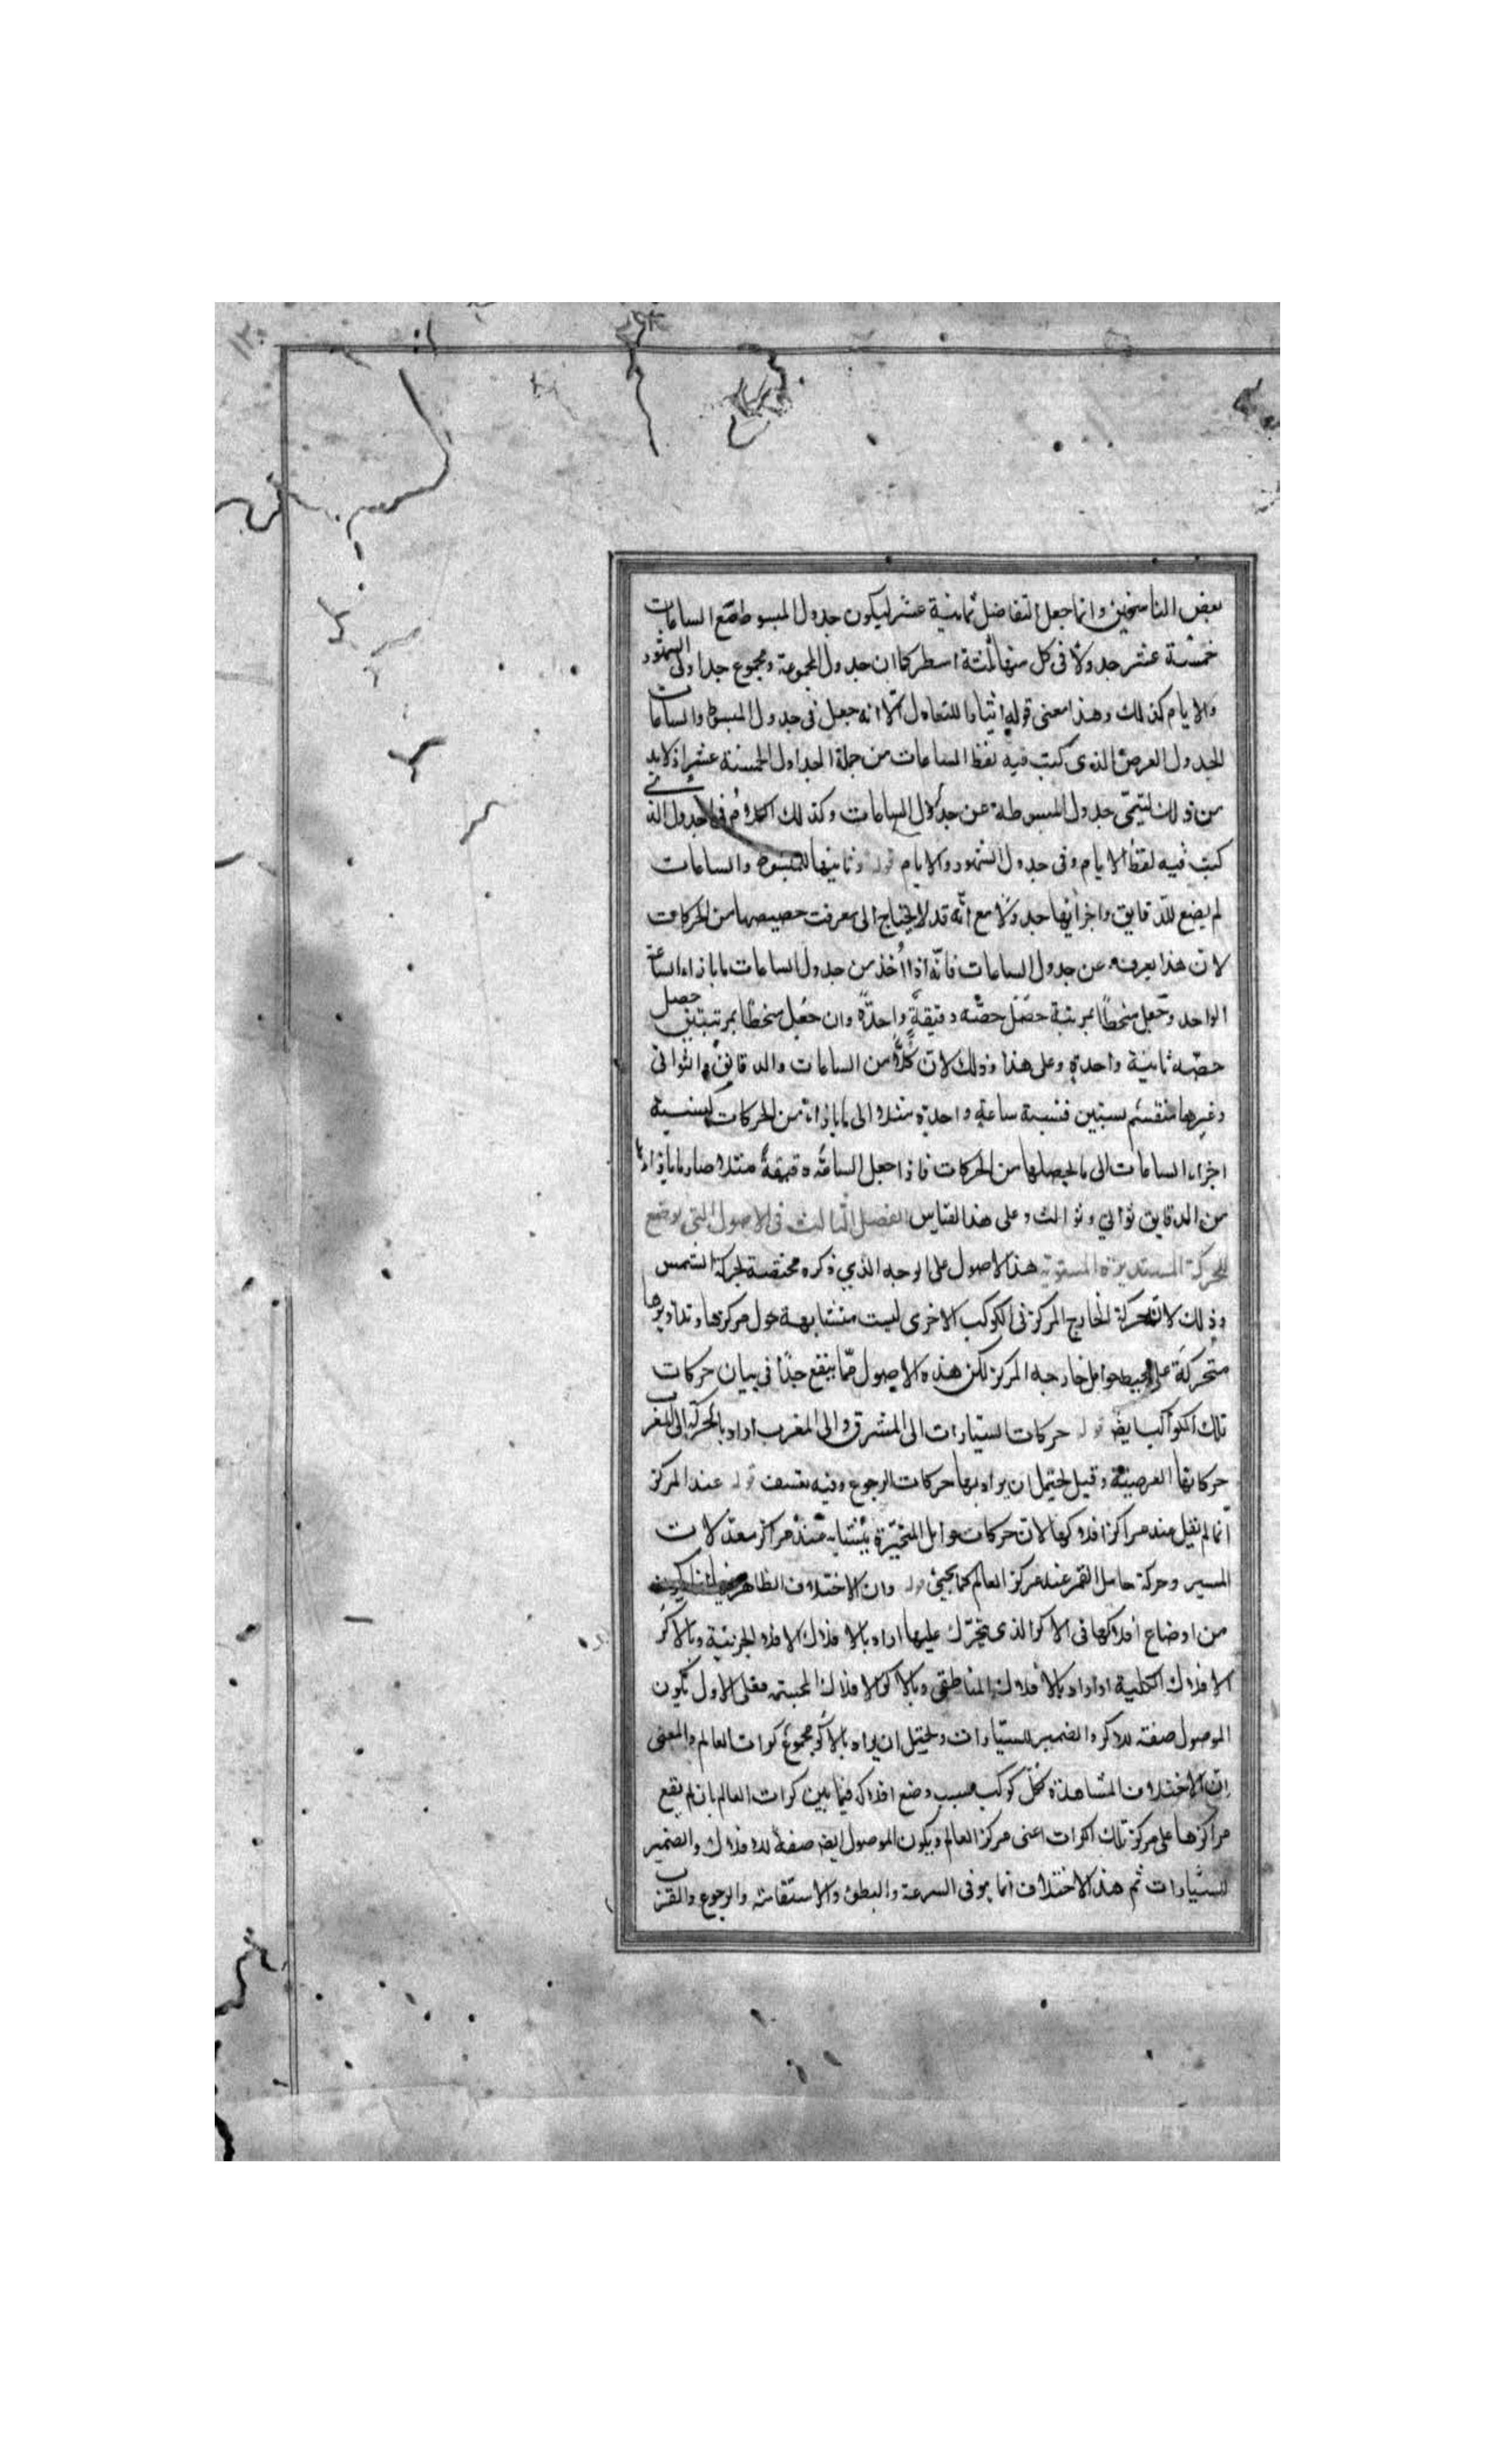 بعض الناسخين وانما جعل التفاضل ثمانية عشر ليكون جدول المبسوطة مع الساعات
خمسة عشر جدولا فى كل منها ثلثة اسطر كما ان جدول المجموعة ومجموع جداول الشهور
والايام كذلك وهذا معنى قوله اثباتا للتعادل الا انه جعل فى جدول المبسوط والساعات
الجدول العرض الذى كتب فيه لفظ الساعات من جملة الجداول الخمسة عشر اذ لابد
من ذلك ليتميّز جدول المبسوطة عن جدول الساعات وكذلك الكلام فى الجدول الذى
كتب فيه لفظ الايام وفى جدول الشهور والايام قوله وثانيها للمبسوط والساعات
لم يضع للدّقايق واخراتها جدولا مع انّه قد لا يحتاج الى معرفت حصيصها من الحركات
لان هذا يعرف من جدول الساعات فانّه اذا اُخذ من جدول الساعات ما بازاء الساعة
الواحد وجعل منحطا بمرتبة حصل حصّه دقيقةٍ واحدةٍ وان جعل منحطا بمرتبتين حصل
حصّه ثانية واحدةٍ وعلى هذا وذلك لان كلاً من الساعات والدقايق والثوانى
وغيرها منقسم بستين فنسبة ساعةٍ واحدةٍ مثلا الى ما بازائه من الحركات كنسبة
اجزاء الساعات الى ما يحصلها من الحركات فاذا جعل الساعة دقيقةً مثلا صار ما بازائها
من الدقايق ثوانى وثوالث وعلى هذا القياس الفصل الثالث فى الاصول التى يوضع
للحركة المستديرة المستوية هذا الاصول على الوجه الذي ذكره مختصة بحركة الشمس
وذلك لان حركة الخارج المركز فى الكوكب الاخرى ليست متشابهة حول مركزها وتداويرها
متحركة على محيط حوامل خارجه المركز لكن هذه الاصول ممّا ينفع جدّا فى بيان حركات
تلك الكواكب ايضا قوله حركات السيارات الى المشرق والى المغرب اراد بالحركة الى المغرب
حركاتها العرضية وقيل يحتمل ان يراد بها حركات الرجوع وفيه تعسف قوله عند المركز
انّما لم يقل عند مراكز افلاكها لان حركات حوامل المتحيّرة يتشابه عند مراكز معدلات
المسير وحركة حامل القمر عند مركز العالم كما يجئ قوله وان الاختلاف الظاهر
من اوضاع افلاكها فى الاكر الذى يتحرّك عليها اراد بالافلاك الافلاك الجزئية وبالاكر
الافلاك الكلية او اراد بالافلاك المناطق وبالاكر الافلاك المجسمة فعلى الاول يكون
الموصول صفته للاكر والضمير للسيارات ويحتمل ان يراد بالاكر مجموع كرات العالم والمعنى
ان الاختلاف المشاهدة لكل كوكب بسبب وضع افلاكه فيما بين كرات العالم بان لم يقع
مراكزها على مركز تلك الكرات اعنى مركز العالم ويكون الموصول ايضا صفة للافلاك والضمير
للسيارات ثم هذا الاختلاف انما هو فى السرعة والبطئ والاستقامة والرجوع والقرب